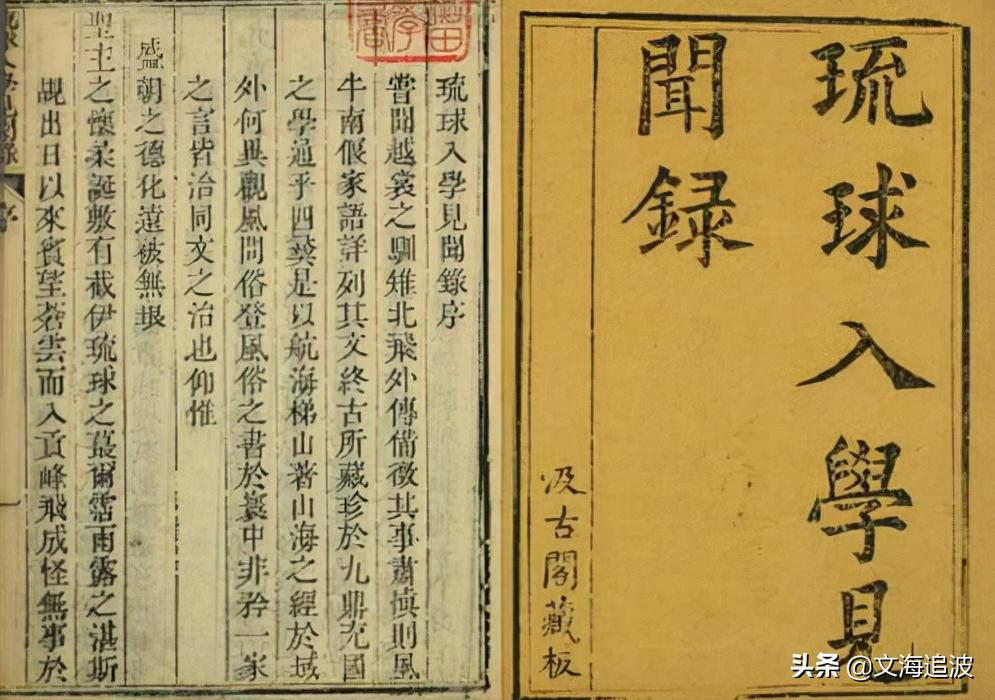 琉球入學見
聞録
汲古閣藏板
琉球入學見聞錄序
嘗聞越裳之馴雉北飛外傳備徵其事肅慎則風
牛南偃家語詳列其文終古所藏珍於九鼎充國
之學通乎四是以航海梯山著山海之經於域
外何異觀風問俗登風俗之書於寰中非矜一家
之言皆治同文之治也仰惟
盛朝之德化遠被無垠
聖主之懷柔誕敷有截伊琉球之蕞爾霑雨露之湛斯
覘出日以來賓望蒼雲而入貢峰飛成怪無事於
头条 @文海追波